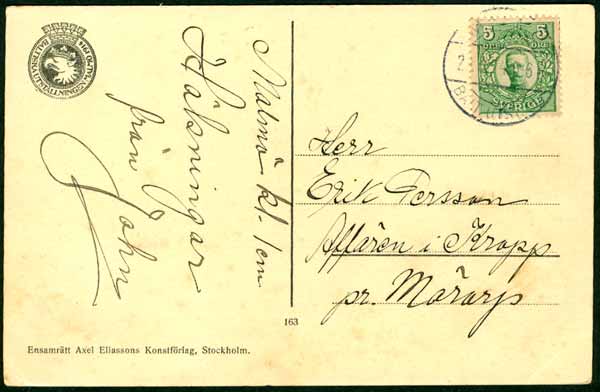 BALTISKA UTSTÄLLNINGEN MALMÖ 1914
Malmö kl. 1 em
Hälsningar
från
John
5 5
SVERIGE
Herr
Erik Persson
Affären i Kropp
pr. Mörarp
163
Ensamrätt Axel Eliassons Konstförlag, Stockholm.